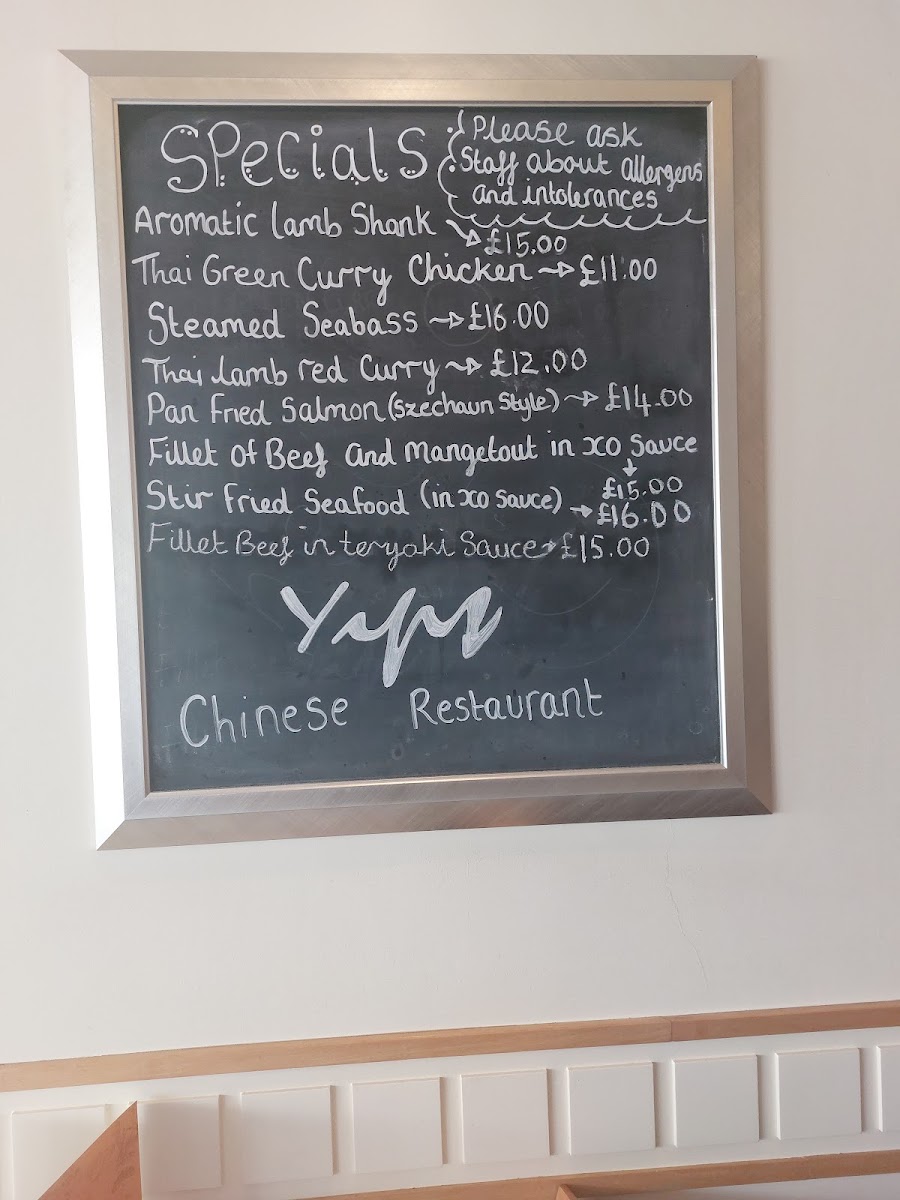 Specials
Please ask
Staff about allergens
and intolerances
Aromatic lamb Shank
£15.00
Thai Green Curry Chicken £11.00
Steamed Seabass £16.00
Thai lamb red Curry £12.00
Pan Fried Salmon (Szechaun Style) £14.00
Fillet Of Beef and mangetout in xo Sauce
£15.00
Stir Fried Seafood (in xo sauce) £16.00
Fillet Beef in teryaki Sauce £15.00
Chinese Restaurant